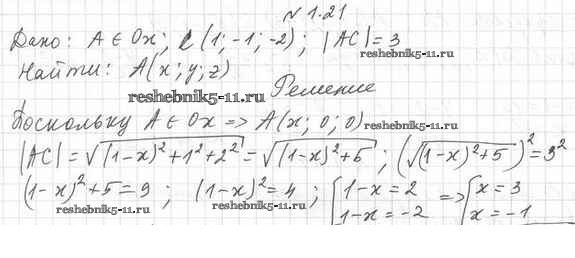 № 1.21
Дано: A ∈ Ox; C(1; -1; -2); |AC| = 3
reshebnik5-11.ru
Найти: A(x; y; z)
reshebnik5-11.ru
Решение
Поскольку A ∈ Ox => A(x; 0; 0)
reshebnik5-11.ru
|AC| = √((1-x)²+1²+2²) = √((1-x)²+5); (√((1-x)²+5))² = 3²
(1-x)²+5 = 9; (1-x)² = 4; { 1-x = 2 => { x = 3
1-x = -2 x = -1
reshebnik5-11.ru reshebnik5-11.ru